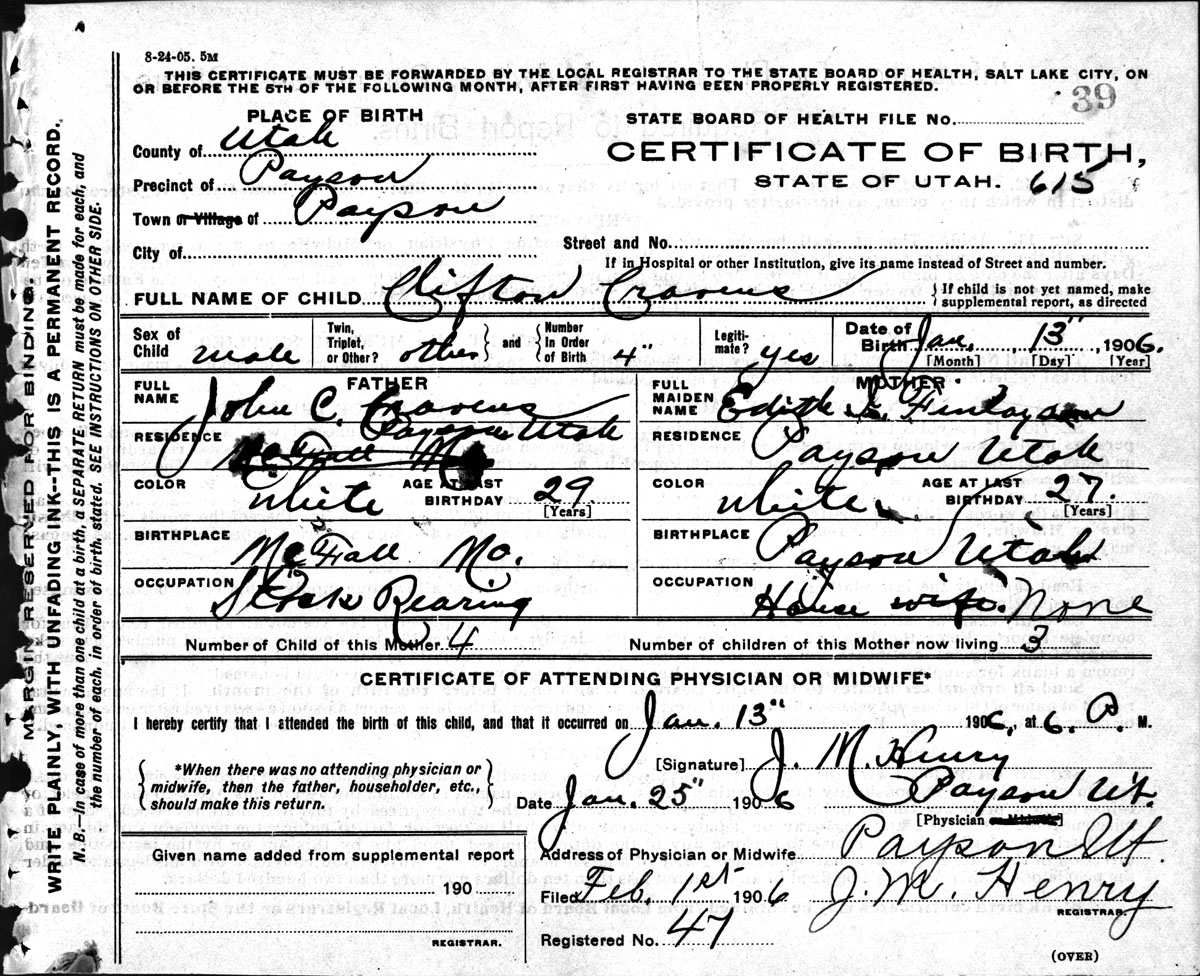 8-24-05. 5M
THIS CERTIFICATE MUST BE FORWARDED BY THE LOCAL REGISTRAR TO THE STATE BOARD OF HEALTH, SALT LAKE CITY, ON
OR BEFORE THE 5TH OF THE FOLLOWING MONTH, AFTER FIRST HAVING BEEN PROPERLY REGISTERED.
39
PLACE OF BIRTH
STATE BOARD OF HEALTH FILE NO.
County of Utah
CERTIFICATE OF BIRTH,
Precinct of Payson
STATE OF UTAH. 615
Town or Village of Payson
City of
Street and No.
If in Hospital or other Institution, give its name instead of Street and number.
FULL NAME OF CHILD Clifton Cravens
If child is not yet named, make
supplemental report, as directed
Sex of Child male
Twin, Triplet, or Other? other
and Number In Order of Birth 4"
Legitimate? yes
Date of Birth Jan. 13" 1906.
[Month] [Day] [Year]
FATHER
FULL NAME John C. Cravens
RESIDENCE Payson Utah
McFall Mo
COLOR White
AGE AT LAST BIRTHDAY 29
[Years]
BIRTHPLACE McFall Mo.
OCCUPATION Stock Rearing
MOTHER
FULL MAIDEN NAME Edith Finlayson
RESIDENCE Payson Utah
COLOR White
AGE AT LAST BIRTHDAY 27.
[Years]
BIRTHPLACE Payson Utah
OCCUPATION House wife. None
Number of Child of this Mother 4
Number of children of this Mother now living 3
CERTIFICATE OF ATTENDING PHYSICIAN OR MIDWIFE*
I hereby certify that I attended the birth of this child, and that it occurred on Jan. 13" 1906, at 6. P. M.
*When there was no attending physician or
midwife, then the father, householder, etc.,
should make this return.
[Signature] J. M. Henry
Date Jan. 25" 1906 Payson Ut.
[Physician or Midwife]
Given name added from supplemental report
190
REGISTRAR.
Address of Physician or Midwife Payson Ut.
Filed Feb. 1st 1906 J. M. Henry
REGISTRAR.
Registered No. 47
(OVER)
MARGIN RESERVED FOR BINDING.
WRITE PLAINLY, WITH UNFADING INK--THIS IS A PERMANENT RECORD.
N. B.—In case of more than one child at a birth, a SEPARATE RETURN must be made for each, and
the number of each, in order of birth, stated. SEE INSTRUCTIONS ON OTHER SIDE.